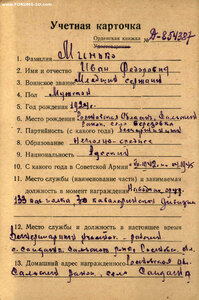 Учетная карточка
Орденская книжка № Д-854387
Удостоверение
1. Фамилия Минько
2. Имя и отчество Иван Федорович
3. Воинское звание Младший сержант
4. Пол Мужской
5. Год рождения 1924г.
6. Место рождения Ростовская область, Сальский
район, село Березовка
7. Партийность (с какого года) беспартийный
8. Образование Неполно-среднее
9. Национальность Русский
10. С какого года в Советской Армии
11. Место службы (наименование части) и занимаемая
должность в момент награждения
кавалерийской дивизии
12. Место службы и должность в настоящее время
Ветеринарный рабочий
13. Домашний адрес награжденного Ростовская об.
Сальский район, село Сандата